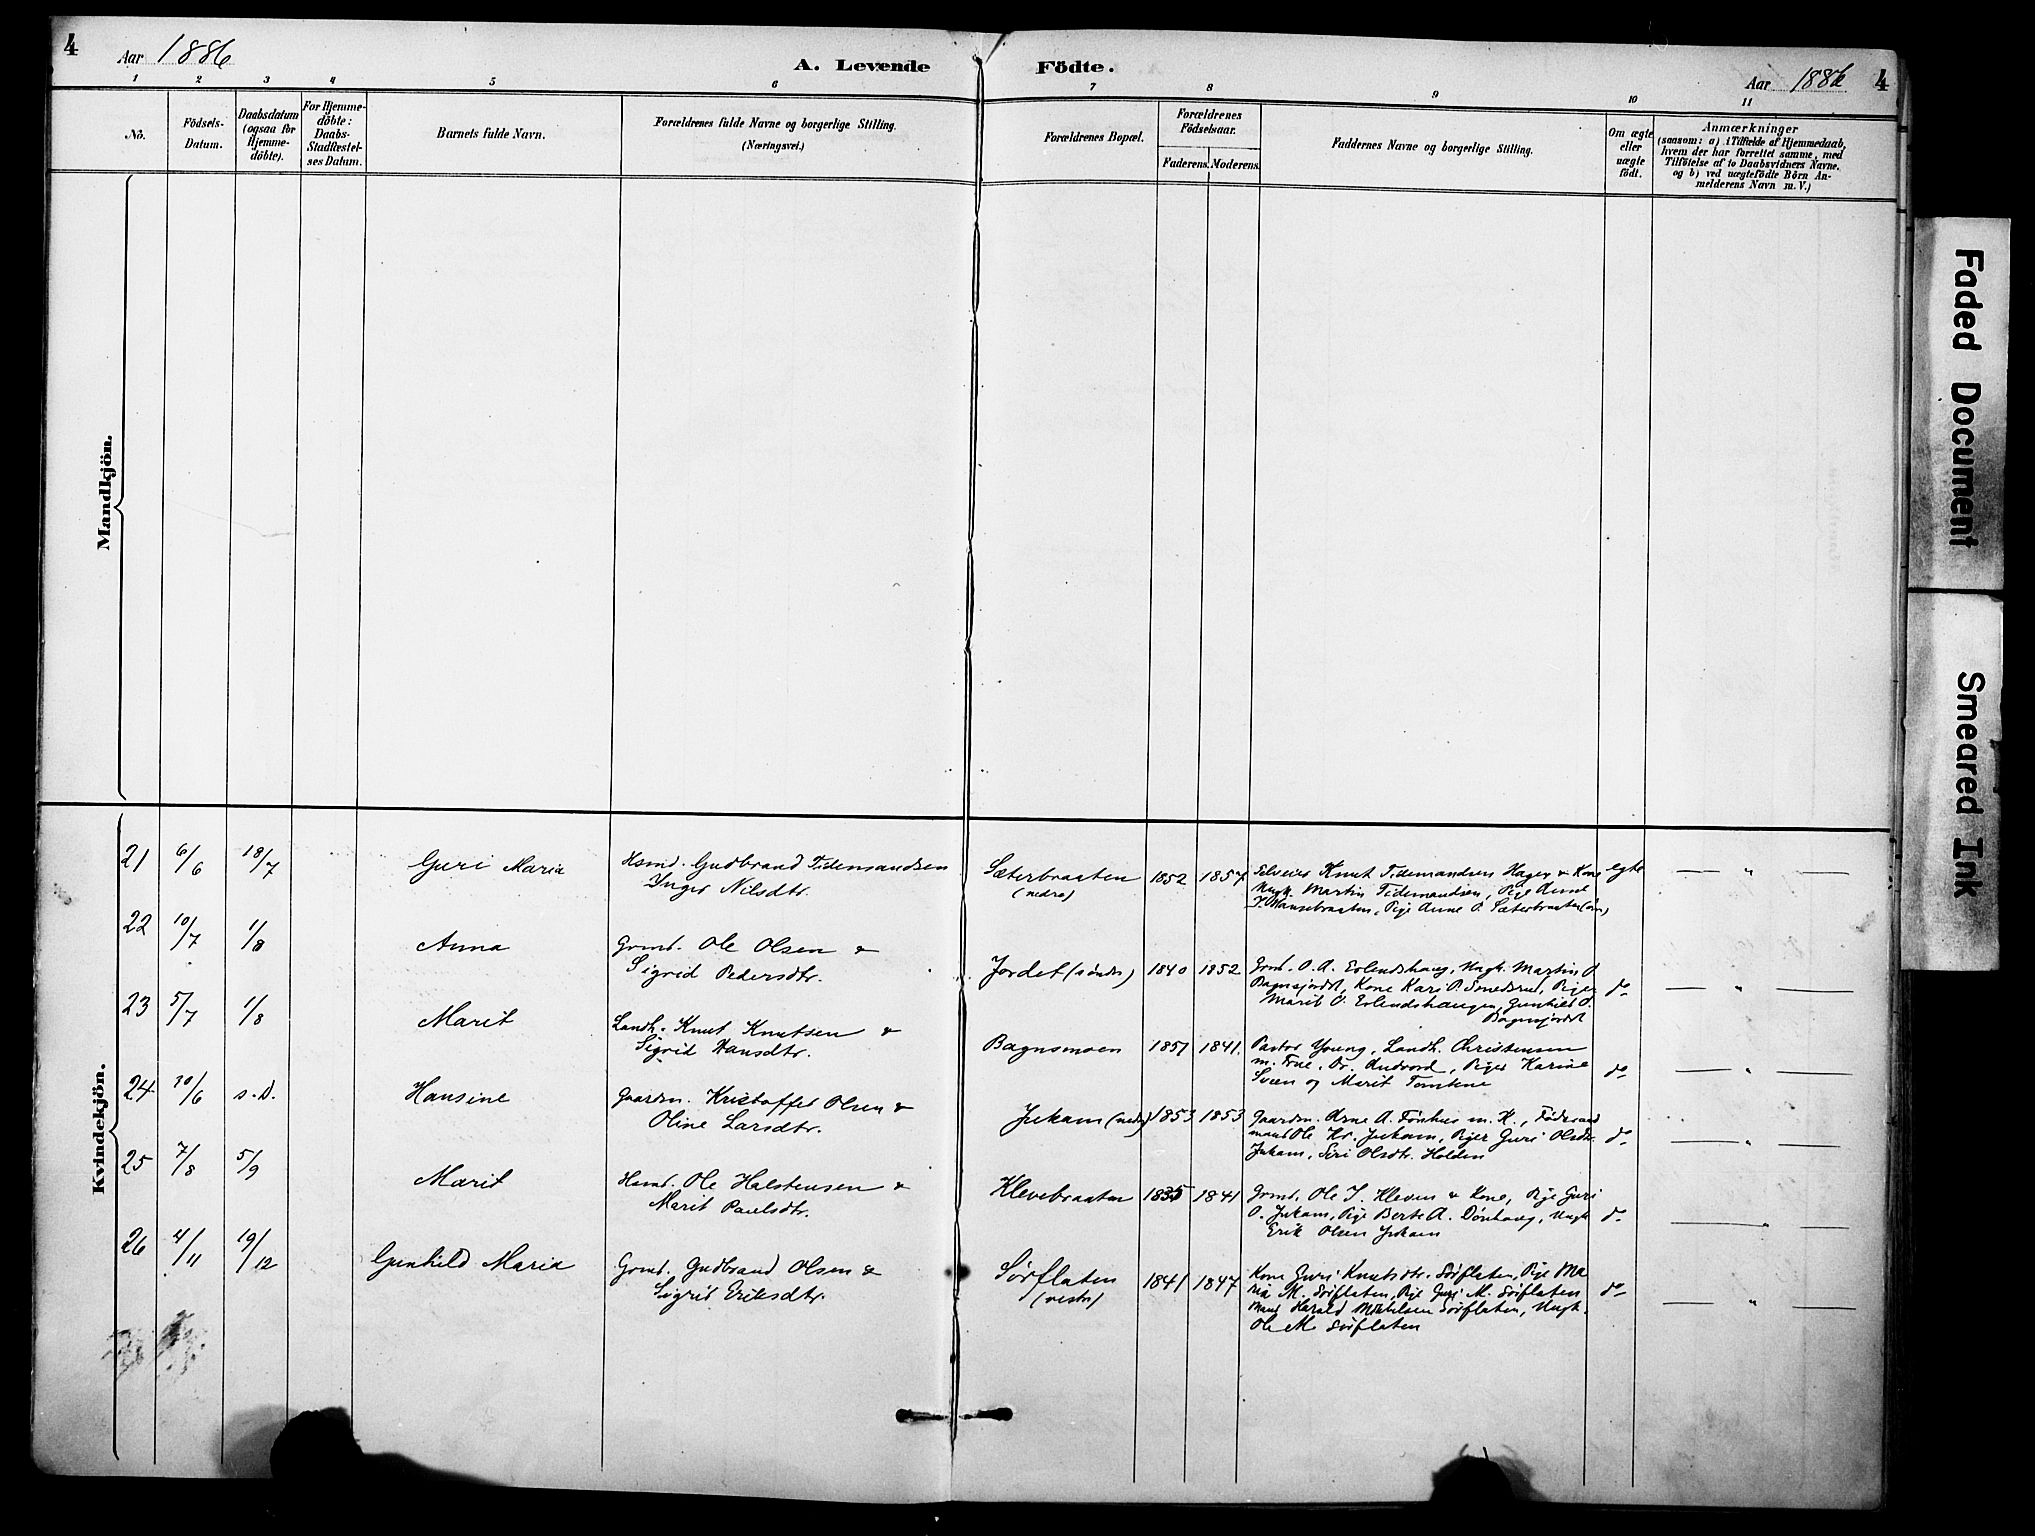 4
Aar 1886
A. Levende Födte.
Aar 1886
4
1 2 3 4 5 6 7 8 9 10 11
Nô.
Födsels-
Datum.
Daabsdatum
(ogsaa for
Hjemme-
döbte).
For Hjemme-
döbte:
Daabs-
Stadfæstel-
ses Datum.
Barnets fulde Navn.
Forældrenes fulde Navne og borgerlige Stilling.
(Næringsvei.)
Forældrenes Bopæl.
Forældrenes
Födselsaar.
Faderens. Moderens.
Faddernes Navne og borgerlige Stilling.
Om ægte
eller
uægte
födt.
Anmærkninger
(saasom: a) i Tilfælde af Hjemmedaab,
hvem der har forrettet samme, med
Tilföielse af to Daabsvidners Navne,
og b) ved uægtefödte Börn An-
melderens Navn m. V.)
Mandkjön.
Kvindekjön.
21 6/6 18/7 Guri Maria Hsmd. Gudbrand Tidemandsen
Inger Nilsdtr.
Sæterbraaten
(nedre)
1852 1857 Selveier Knut Tidemandsen Hagen & Kone
Ungk. Martin Tidemandsen, Pige Anne
Pige Anne O. Sæterbraaten
egte — " —
22 10/7 1/8 Anna Grmd. Ole Olsen &
Sigrid Pedersdtr.
Jordet (söndre) 1840 1852 Grmd. O. A. Erlendshaug, Ungk. Martin O
Bagnsjordet, Kone Kari P. Smedsrud, Piger
Marit O. Erlendshaugen, Gunhild O.
Bagnsjordet
do — " —
23 5/7 1/8 Marit Landh. Knut Knutsen &
Sigrid Hansdtr.
Bagnsmoen 1851 1841. Pastor Young, Landh. Christensen
m. Frue, Dr. Andvord, Piger Karine
Sveen og Marit Tomtene
do — " —
24 10/6 s. D. Hansine Gaardm. Kristoffer Olsen &
Oline Larsdtr.
Jukam (nedre) 1853 1853 Gaardm. Arne A. Fönhus m. K., Föderaad
mand Ole Kr. Jukam, Piger Guri Olsdtr.
Jukam, Siri Olsdtr. Holden
do — " —
25 7/8 5/9 Marit Hsmd. Ole Halstensen &
Marit Paulsdtr.
Klevebraaten 1835 1841 Grmd. Ole T. Kleven & Kone, Pige Guri
O. Jukam, Pige Berte A. Dönhaug, Ungk
Erik Olsen Jukam
do — " —
26 4/11 19/12 Gunhild Maria Grmd. Gudbrand Olsen &
Sigrid Eriksdtr.
Sørflaten
(vestre)
1841 1847 Kone Guri Knutsdtr. Sørflaten, Pige Ma
ria M. Sørflaten, Pige Guri M. Sørflaten
Harald Mikkelsen Sørflaten, Ungk.
Ole M. Sørflaten
do — " —
Faded Document
Smeared Ink